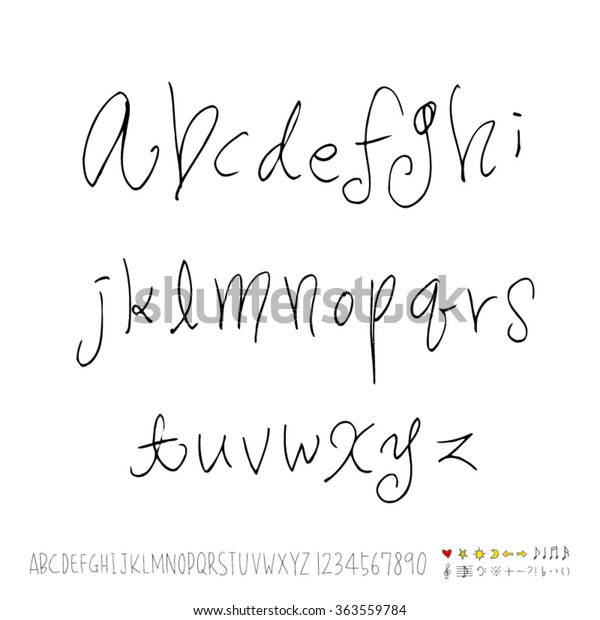 abcdefghi
jklmnopqrs
tuvwxyz
ABCDEFGHIJKLMNOPQRSTUVWXYZ 1234567890
※+-?!♭··()
shutterstock
www.shutterstock.com · 363559784